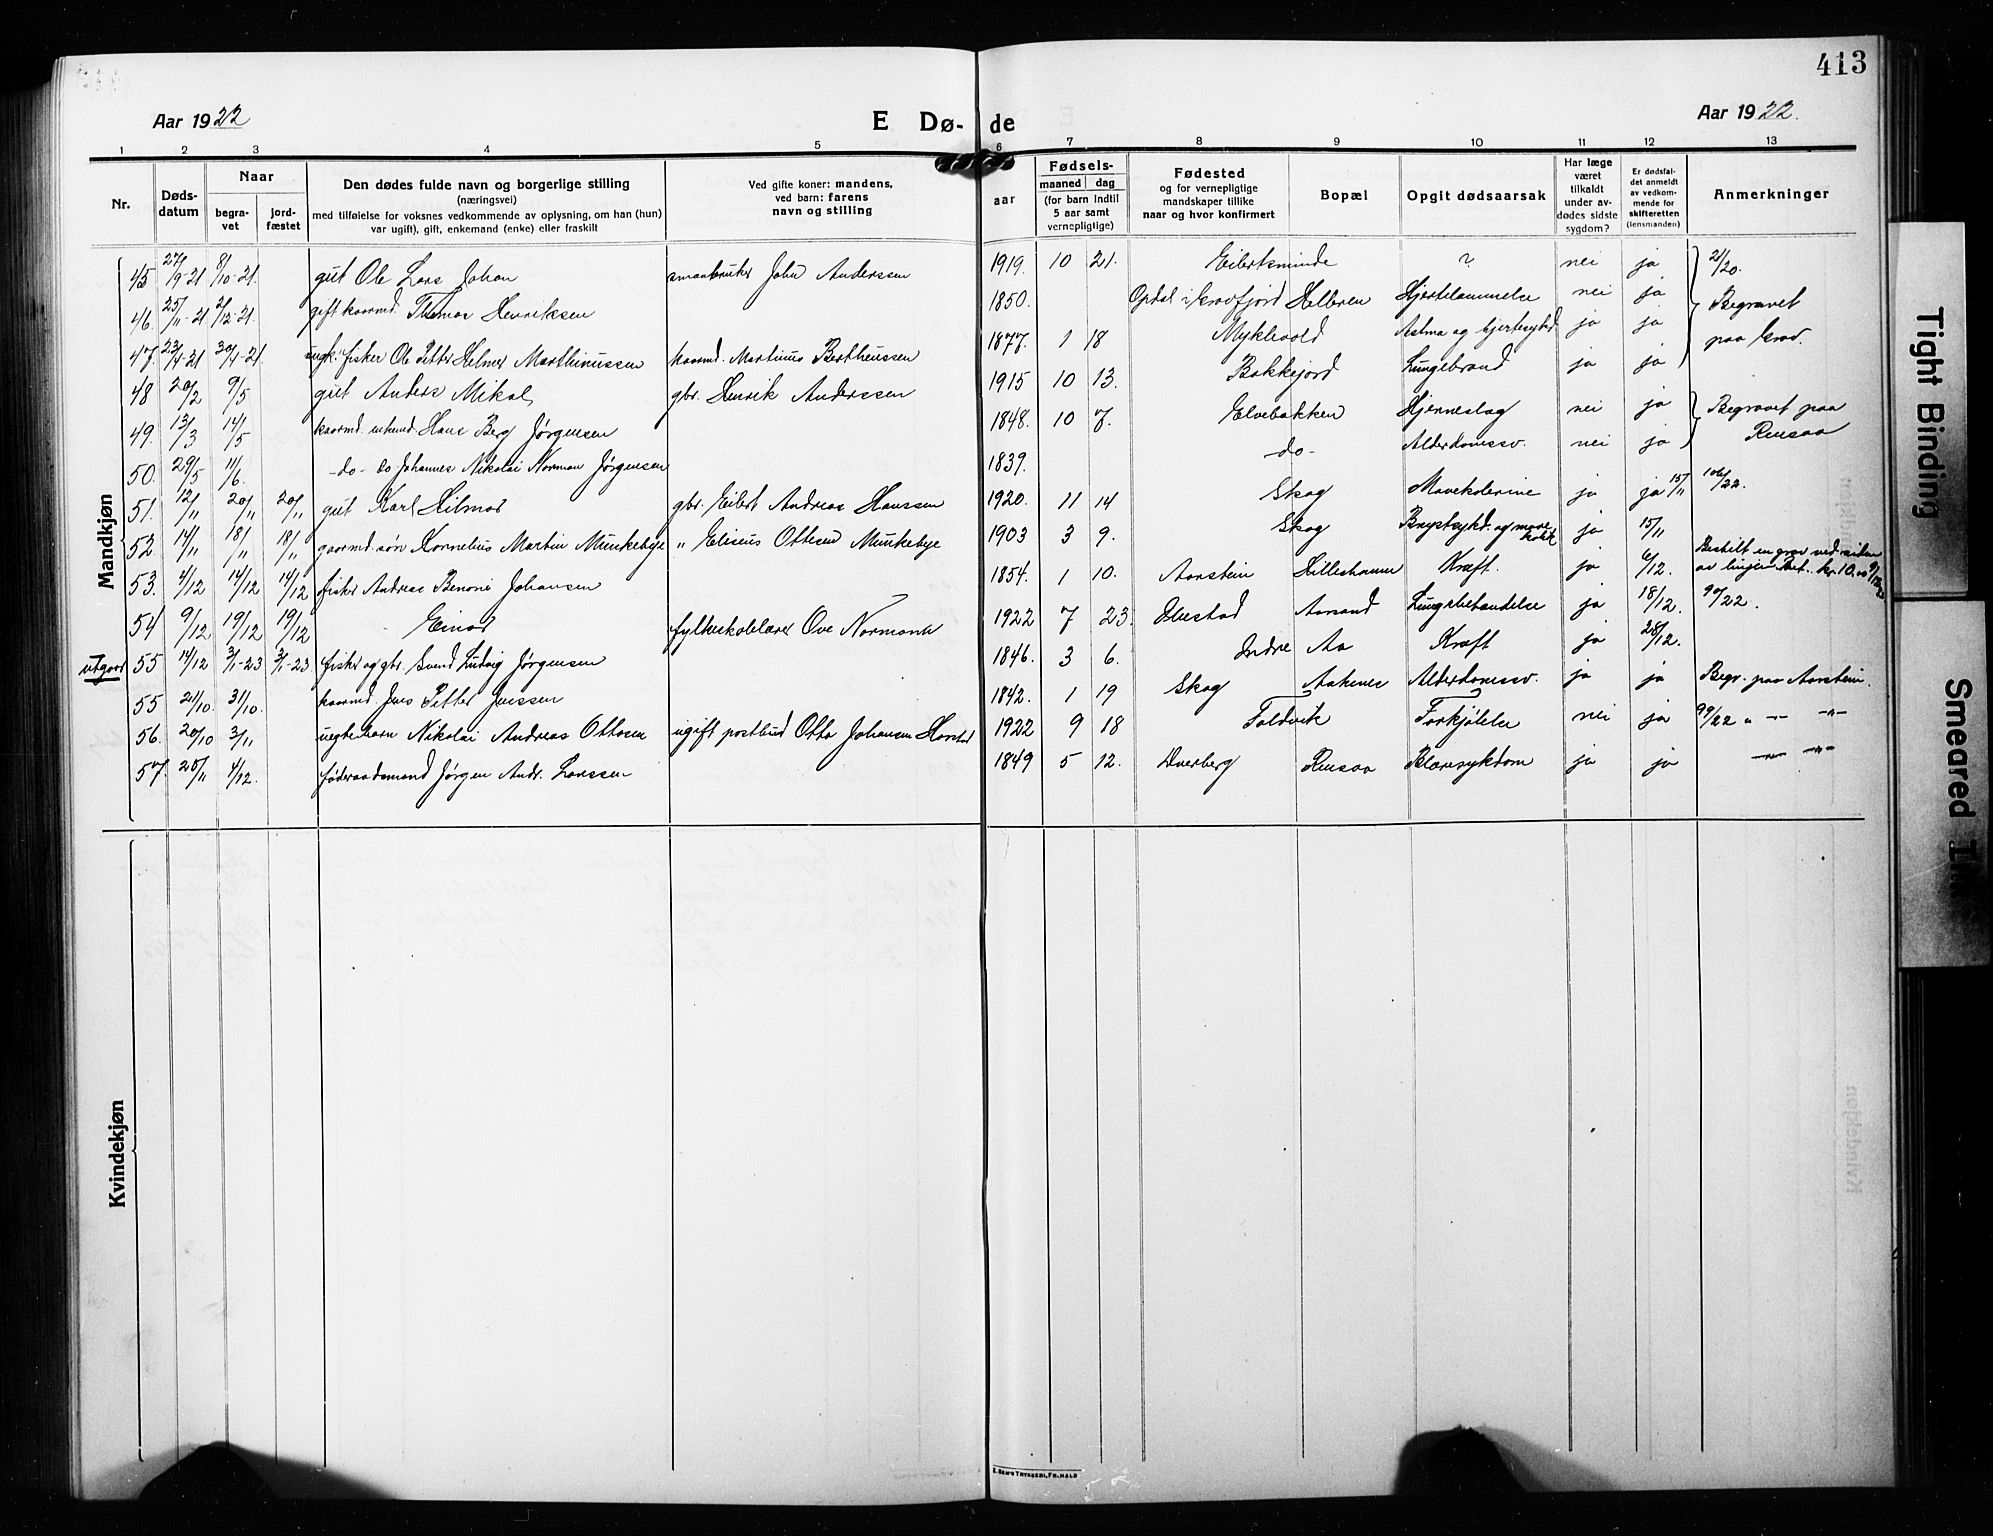 413
Aar 1922
E Dø- de
Aar 1922.
1 2 3 4 5 6 7 8 9 10 11 12 13
Nr.
Døds-
datum
Naar
begra-
vet
jord-
fæstet
Den dødes fulde navn og borgerlige stilling
(næringsvei)
med tilføielse for voksnes vedkommende av oplysning, om han (hun)
var ugift), gift, enkemand (enke) eller fraskilt
Ved gifte koner: mandens,
ved barn: farens
navn og stilling
Fødsels-
aar
maaned dag
(for barn indtil
5 aar samt
vernepligtige)
Fødested
og for vernepligtige
mandskaper tillike
naar og hvor konfirmert
Bopæl
Opgit dødsaarsak
Har læge
været
tilkaldt
under av-
dødes sidste
sygdom?
Er dødsfal-
det anmeldt
av vedkom-
mende for
skifteretten
(lensmanden)
Anmerkninger
Mandkjøn
45 27/9-21 8/10-21. gut Ole Lars Johan smaabruker John Anderssen 1919. 10 21. Eilertsminde ? nei ja 21/20.
46. 25/11-21 2/12-21. gift kaarmd. Thomas Henriksen 1850. Opdal i Helleren Hjertelammelse nei ja Begravet
47. 23/4-21 30/4-21. fisker Ole Petter Helmer Marthinussen kaarmd. Martinus Bertheussen 1877. 1 18 Myklevold Astma og hjertesykd. ja ja paa Grav.
48 20/2 9/5 gut Anders Mikal gbr. Henrik Anderssen 1915 10 13. Bakkejord Lungebrand ja ja
49. 13/3 14/5 kaarmd. enkemd. Hans Berg Jørgensen 1848. 10 7. Elvebakken Hjerneslag nei ja Begravet paa
50. 29/5 11/6. -do- do Johannes Nikolai Norman Jørgensen 1839. -do- Alderdomssv. nei ja Rensaa
51. 12/11 20/11 20/11 gut Karl Hilmar gbr. Eilert Andreas Hanssen 1920. 11 14 Skog Mavekolerine ja ja 15/11 106/22.
52. 14/11 18/11 18/11 gaarmd. søn Kornelius Martin Munkebye " Eliseus Ottesen Munkebye 1903 3 9. Skog Brystsykd. og mave ja 15/11
53. 4/12 14/12 14/12 fisker Andreas Benoni Johansen 1854. 1 10. Aarstein Hilleshamn Kræft. ja 6/12. Bestilt en grav ved siden
av linjen bet. kr. 10.00 9/12 22
54 9/12 19/12 19/12 Einar fylkeskolelærer Ove Normann 1922 7 23. Ibestad Aarsand Lungebetændelse ja 18/12. 90/22.
utgaar 55 14/12 3/1-23 3/1-23 fisker og gbr. Svend Ludvig Jørgensen 1846. 3 6. Indre Aa Kræft ja 28/12.
55 21/10. 31/10. kaarmd. Jens Petter Jenssen 1842. 1 19 Skog Aakenes Alderdomssv. ja ja Begr. paa Aarstein.
56. 20/10 3/11 uegte barn Nikolai Andreas Ottosen ugift postbud Otto Johansen Harstad 1922 9 18 Foldvik Forkjølelse nei ja 99/22 " -"- -"-
57. 25/11 4/12. føderaadsmand Jørgen Andr. Larssen 1849 5 12. Dverberg Rensaa Blæresykdom ja ja -"- -"-
Kvindekjøn
E. SEM'S TRYKKERI, FR.HALD
Tight Binding
Smeared Ink